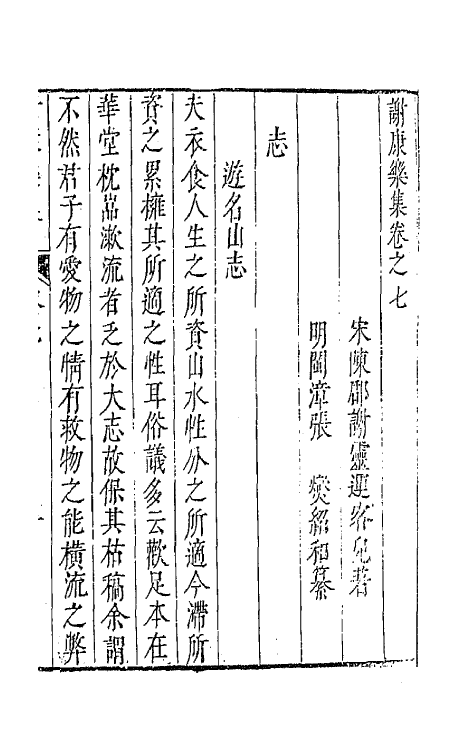 謝康樂集卷之七
宋陳郡謝靈運客兒著
明閩漳張 燮紹和纂
志
遊名山志
夫衣食人生之所資山水性分之所適今滯所
資之累擁其所適之性耳俗議多云歡足本在
華堂枕嵓漱流者乏於大志故保其枯槁余謂
不然君子有愛物之情有救物之能橫流之弊